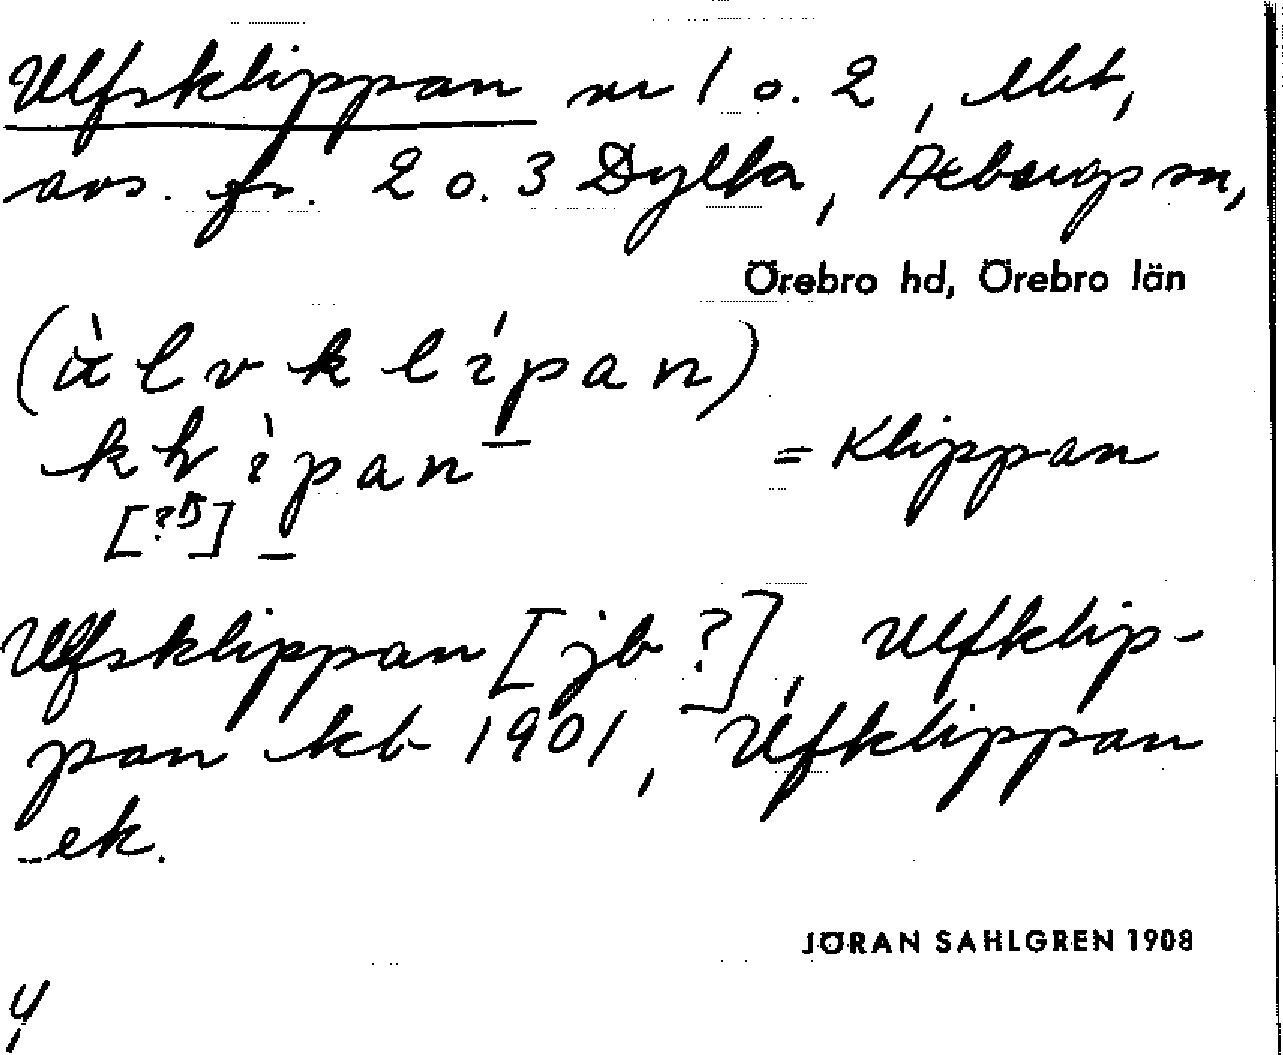 Ulfsklippan nr 1 o. 2, lht,
avs. fr. 2 o. 3 Dylta, Axbergs sn,
Örebro hd, Örebro län
(ùlvklípan)
klìpan = Klippan
[?]
Ulfsklippan [jb ?], Ulfklip-
pan kb 1901, Ulfklippan
ek.
JÖRAN SAHLGREN 1908